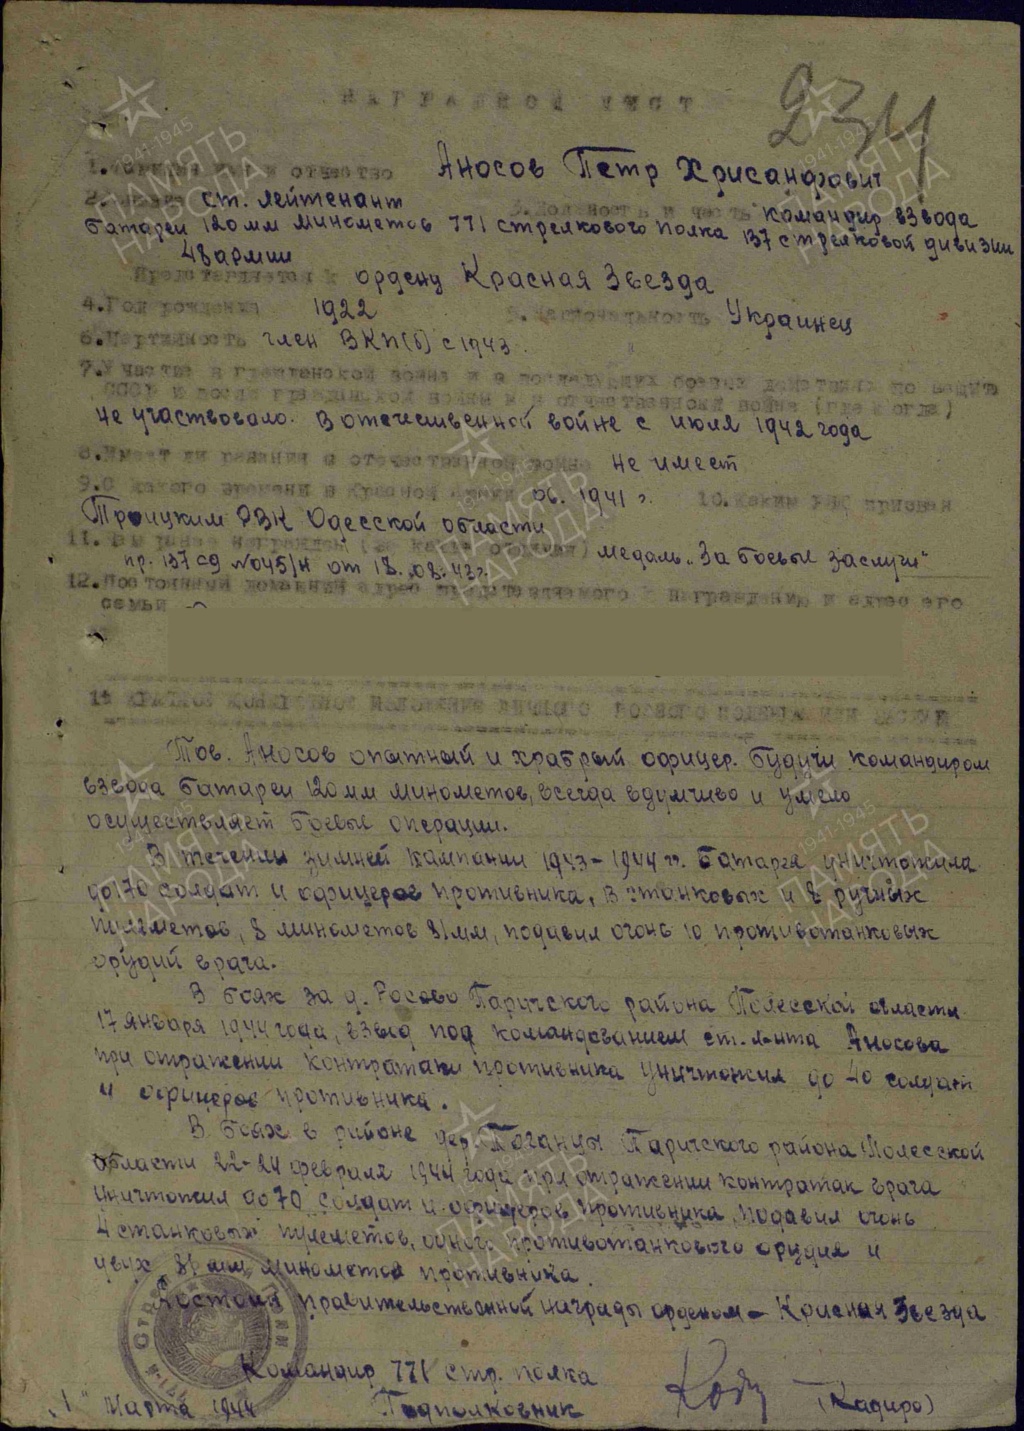 2311
НАГРАДНОЙ ЛИСТ
1. Фамилия имя и отчество Аносов Петр Хрисанфович
2. Звание ст. лейтенант 3. Должность и часть командир взвода
батареи 120 мм минометов 771 стрелкового полка 137 стрелковой дивизии
48 армии
Представляется к ордену Красная Звезда
4. Год рождения 1922 5. Национальность Украинец
6. Партийность член ВКП(б) с 1943.
7. Участие в гражданской войне и в последующих боевых действиях по защите
СССР и после гражданской войны и в отечественной войне (где когда)
не участвовало. В отечественной войне с июля 1942 года
8. Имеет ли ранения в отечественной войне не имеет
9. С какого времени в Красной Армии 06. 1941 г. 10. Каким РВК призван
Троицким РВК Одесской области
11. Чем ранее награжден (за какие отличия) медаль "За боевые заслуги"
пр. 137 сд №045/н от 18.08.43 г.
12. Постоянный домашний адрес представляемого к награждению и адрес его
семьи
КРАТКОЕ КОНКРЕТНОЕ ИЗЛОЖЕНИЕ ЛИЧНОГО БОЕВОГО ПОДВИГА ИЛИ ЗАСЛУГ
Тов. Аносов опытный и храбрый офицер. Будучи командиром
взвода батареи 120 мм минометов, всегда вдумчиво и умело
осуществляет боевые операции.
В течении зимней кампании 1943-1944 гг. батарея уничтожила
до 170 солдат и офицеров противника, 13 станковых и 8 ручных
пулеметов, 8 минометов 81 мм, подавил огонь 10 противотанковых
орудий врага.
В боях за д. Росово Паричского района Полесской области
17 января 1944 года, взвод под командованием ст. л-нта Аносова
при отражении контратаки противника уничтожил до 40 солдат
и офицеров противника.
В боях в районе дер. Поганцы Паричского района Полесской
области 22-24 февраля 1944 года при отражении контратак врага
уничтожил до 70 солдат и офицеров противника, подавил огонь
4 станковых пулеметов, одного противотанкового орудия и
двух 81 мм минометов противника.
Достоин правительственной награды орденом - Красная Звезда
Командир 771 стр. полка
"1" Марта 1944 Подполковник (Кадиро)
ПАМЯТЬ НАРОДА
1941-1945